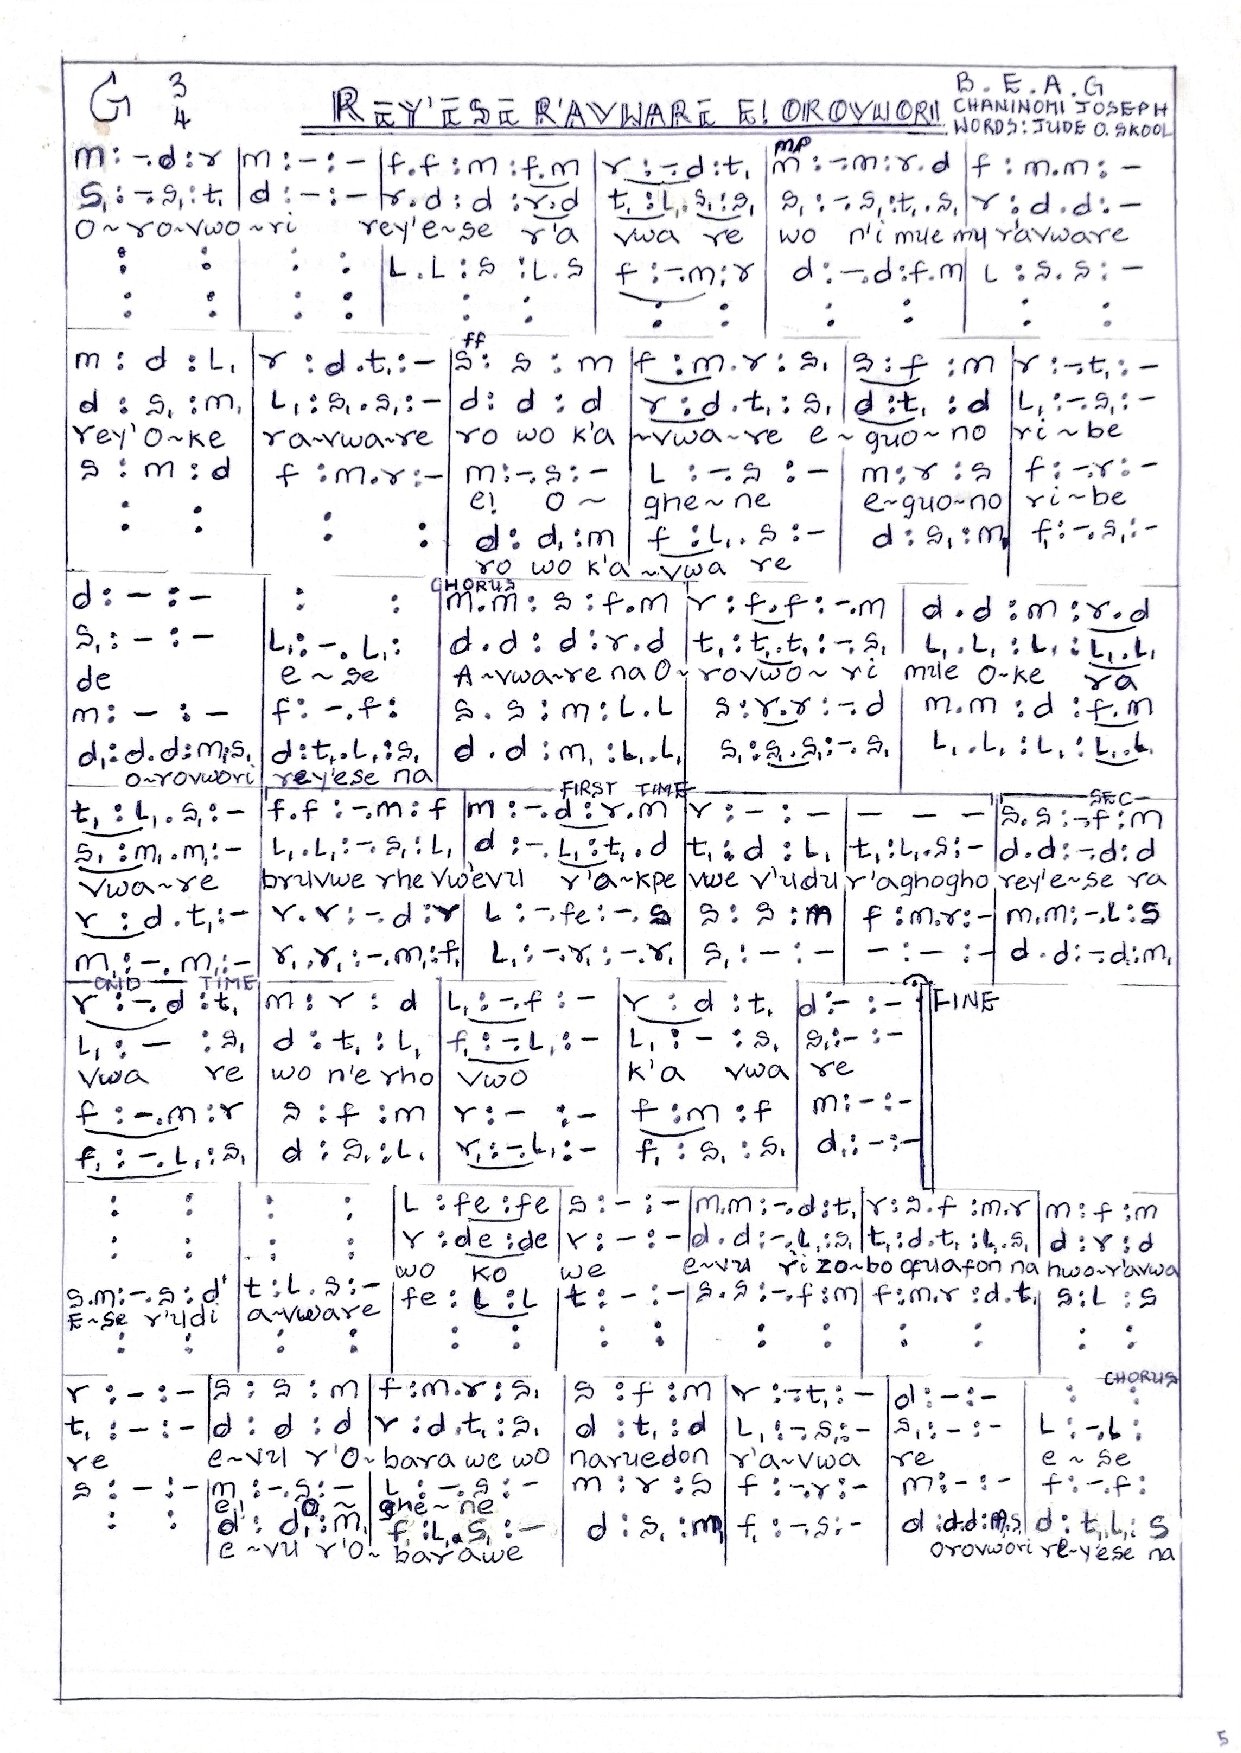 G 3/4 REY'ESE R'AVWARE E! OROVWORI! B.E.A.G
CHANINOMI JOSEPH
WORDS: JUDE O. SKOOL
mp
m :-.d:r |m :-:- |f.f :m :f.m |r :-.d:t, |m :-.m:r.d |f :m.m :-
s, :-.s,:t, |d :-:- |r.d :d :r.d |t, :L,.s,:s, |s, :-.s,:t,.s, |r :d.d :-
O~ro~vwo~ri rey'e~se r'a vwa re wo n'i mue my r'avware
: : | : : |L.L :s :L.s |f :-.m:r |d :-.d:f.m |L :s.s :-
: : | : : | : : | : : | : : | : :
ff
m : d : L, |r :d.t, :- |s : s : m |f :m.r :s, |s :f :m |r :-.t, :-
d : s, : m, |L, :s,.s, :- |d : d : d |r :d.t, :s, |d :t, :d |L, :-.s, :-
rey'O~ke ra~vwa~re ro wo k'a ~vwa~re e~guo~no ri~be
s : m : d |f :m.r :- |m :-.s :- |L :-.s :- |m :r :s |f :-.r :-
e! O~ ghe~ne e~guo~no ri~be
: : | : : |d : d, :m |f :L,.s :- |d :s, :m, |f, :-.s, :-
ro wo k'a ~vwa re
CHORUS
d :- :- | : : |m.m : s :f.m |r :f.f :-.m |d.d :m :r.d
s, :- :- |L, :-.L, : |d.d : d :r.d |t, :t,.t, :-.s, |L,.L, :L, :L,.L,
de e~se A~vwa~re na O~rovwo~ri mue O~ke ra
m :- :- |f :-.f : |s.s :m :L.L |s :r.r :-.d |m.m :d :f.m
d, :d.d :m,s, |d :t,.L, :s, |d.d :m, :L,.L, |s, :s,.s, :-.s, |L,.L, :L, :L,.L,
o~rovwori rey'ese na
FIRST TIME SEC-
t, :L,.s, :- |f.f :-.m :f |m :-.d :r.m |r :- :- |- - - |s.s :-.f :m
s, :m,.m, :- |L,.L, :-.s, :L, |d :-.L, :t,.d |t, :d :L, |t, :L,.s :- |d.d :-.d :d
vwa~re bruvwe rhe vw'evu r'a~kpe vwe v'udu r'aghogho rey'e~se ra
r :d.t, :- |r.r :-.d :r |L :-.fe :-.s |s :s :m |f :m.r :- |m.m :-.L :s
m, :-.m, :- |r,.r, :-.m, :f, |L, :-.r, :-.r, |s, :- :- |- :- :- |d.d :-.d :m,
OND TIME
r :-.d :t, |m :r :d |L, :-.f :- |r :d :t, |d :- :- FINE
L, :- :s, |d :t, :L, |f, :-.L, :- |L, :- :s, |s, :- :-
vwa re wo n'e rho vwo k'a vwa re
f :-.m :r |s :f :m |r :- :- |f :m :f |m :- :-
f, :-.L, :s, |d :s, :L, |r, :-.L, :- |f, :s, :s, |d, :- :-
: : | : : |L :fe :fe |s :- :- |m.m :-.d :t, |r :s.f :m.r |m :f :m
: : | : : |r :de :de |r :- :- |d.d :-.L, :s, |t, :d.t, :L,.s, |d :r :d
wo ko we e~vu ri zo~bo ofuafon na hwo~r'avwa
s.m :-.s :d' |t :L.s :- |fe :L :L |t :- :- |s.s :-.f :m |f :m.r :d.t, |s :L :s
E~se r'udi a~vware
: : | : : | : : | : : | : : | : : | : :
CHORUS
r :- :- |s : s : m |f :m.r :s, |s :f :m |r :-.t, :- |d :- :- | : :
t, :- :- |d : d : d |r :d.t, :s, |d :t, :d |L, :-.s, :- |s, :- :- |L :-.L :
re e~vu r'O~bara we wo naruedon r'a~vwa re e~se
s :- :- |m :-.s :- |L :-.s :- |m :r :s |f :-.r :- |m :- :- |f :-.f :
e! O~ ghe~ne
: : |d : d, :m, |f, :L,.s, :- |d :s, :m, |f, :-.s, :- |d :d.d :m,s, |d :t,.L, :s
e~vu r'O~barawe orovwori re~y'ese na
5